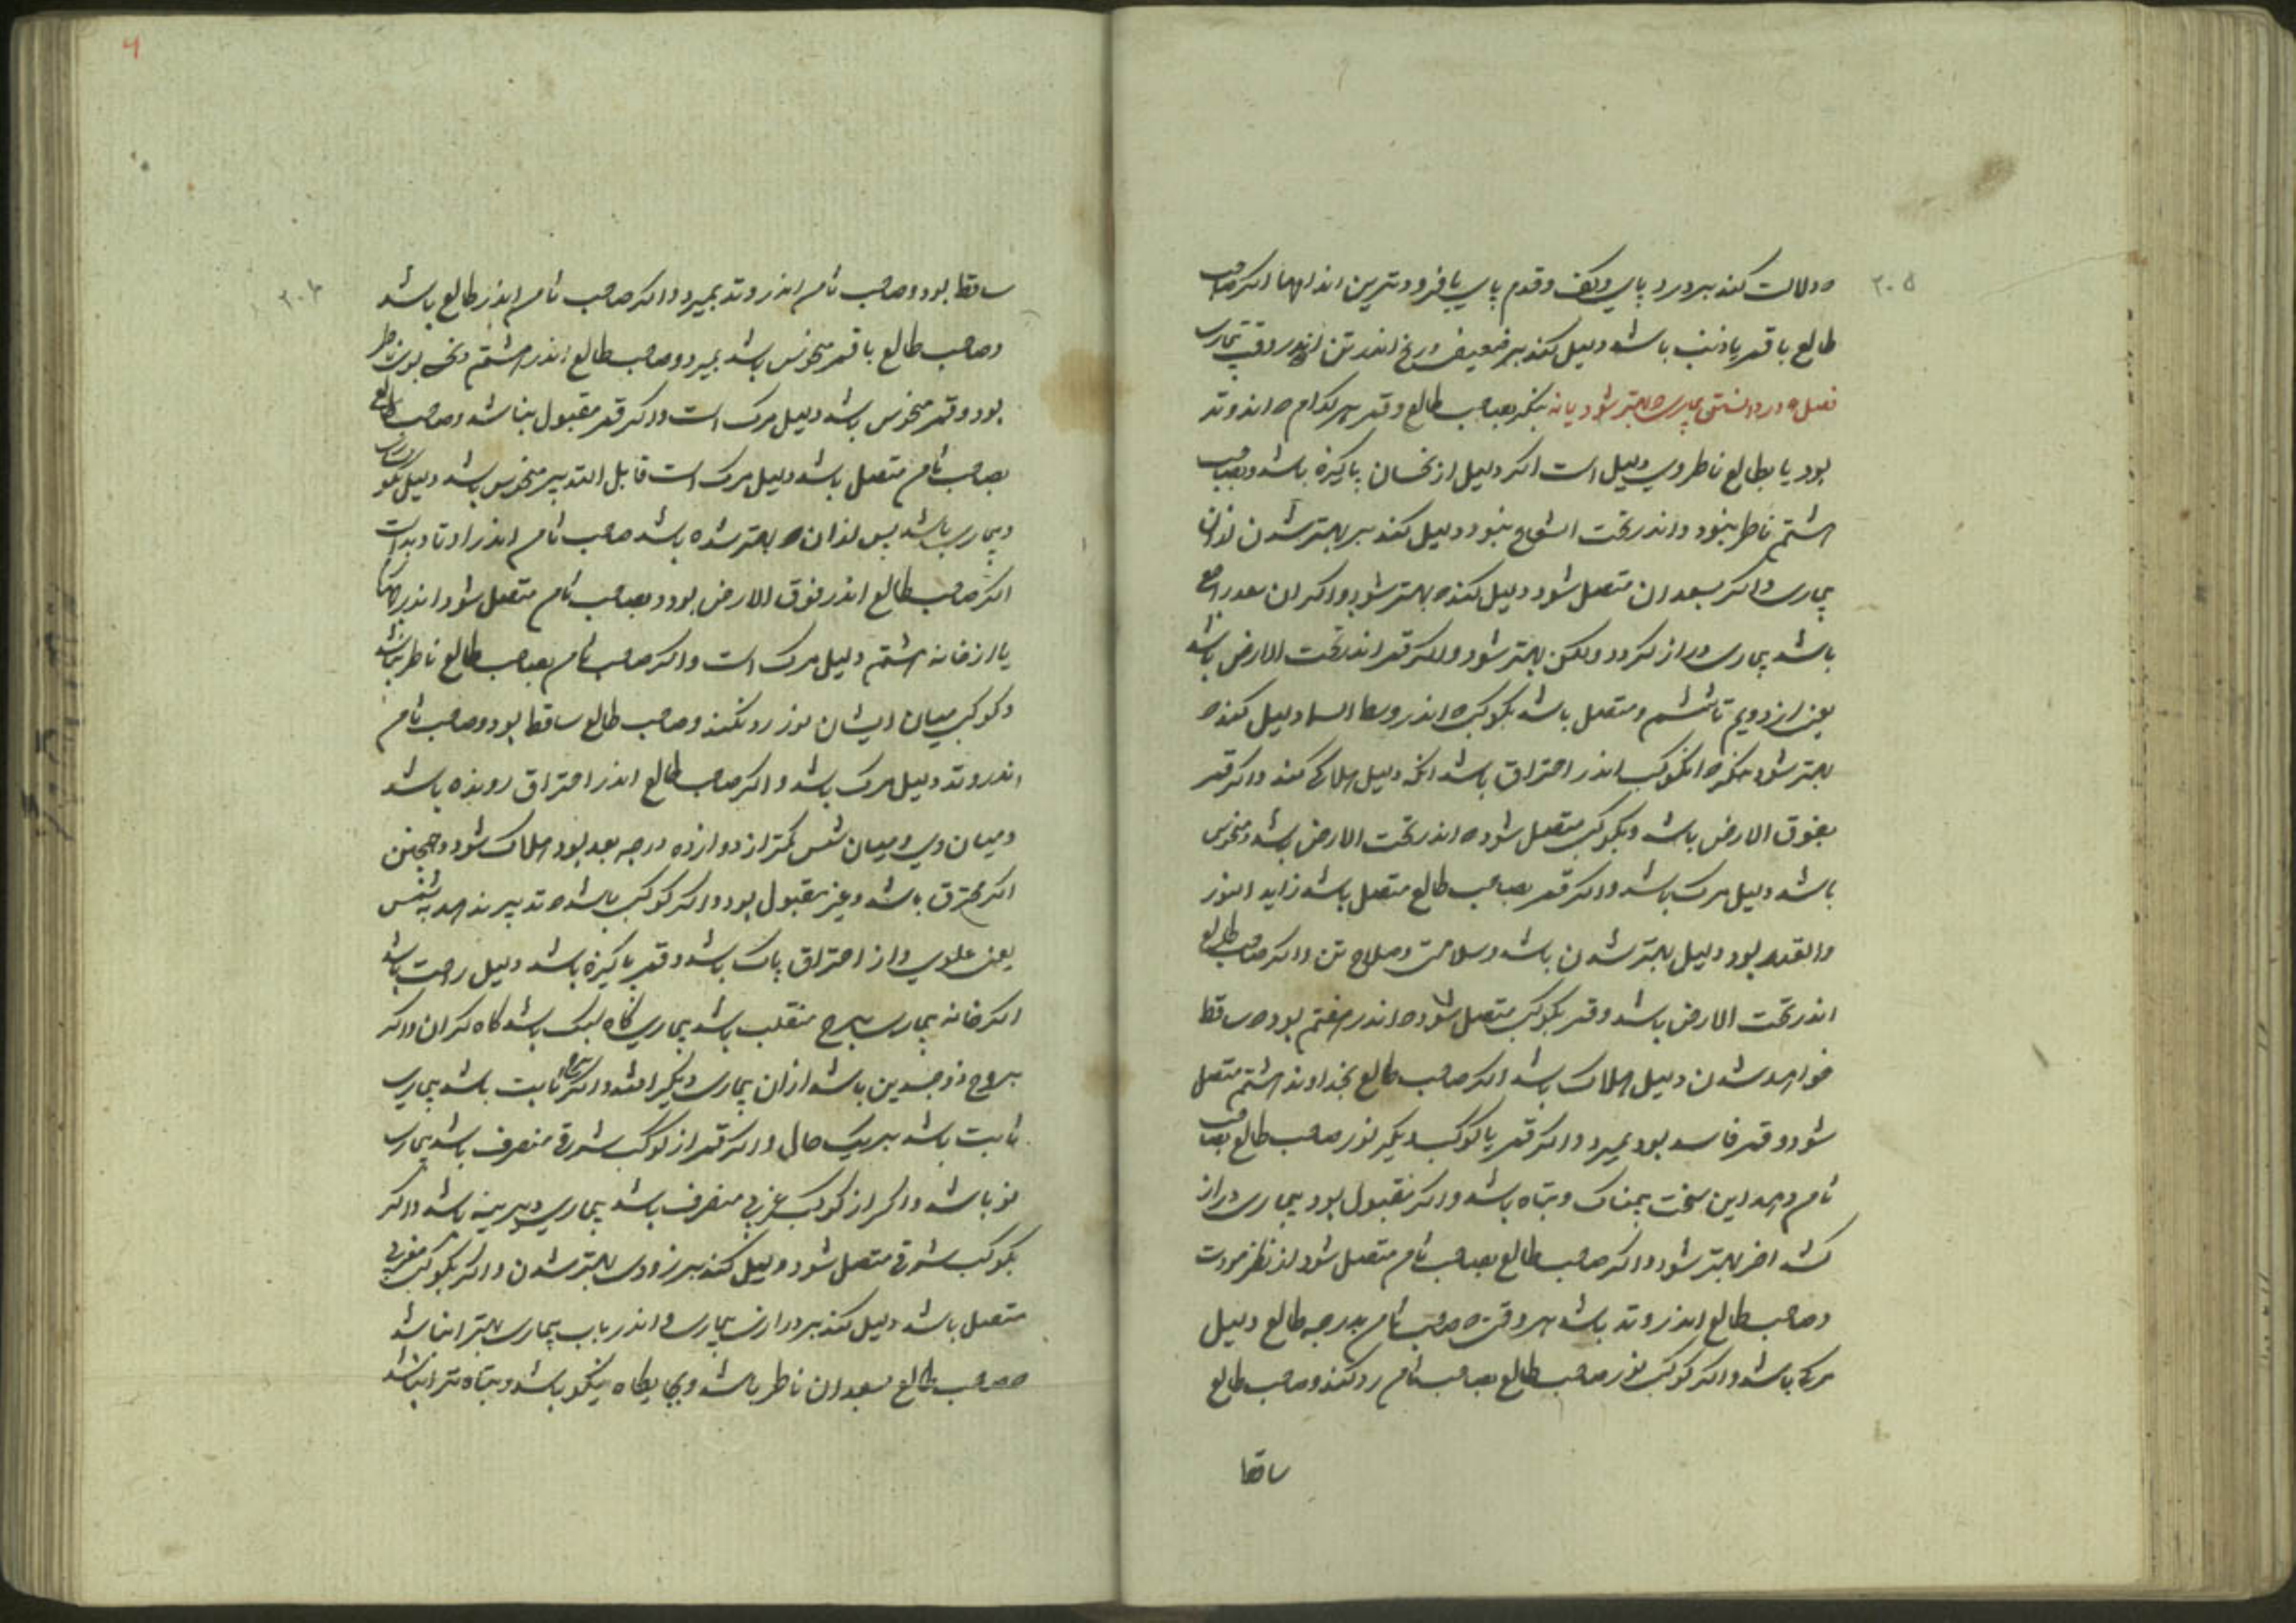 ۲۰۵
دلالت کند بر درد پای وکف وقدم پای یا فرودترین اندامها اکر صاحب
طالع با قمر یا ذنب باشد دلیل کند بر ضعیفی ورنج اندر تن اندر وقت بیماری
فصل در دانستن بیماری بهتر شود یا نه بنکر بصاحب طالع وقمر هر کدام اندر وتد
بود یا بطالع ناظر وی دلیل است اکر دلیل از نحسان پاکیزه باشد وبصاحب
هشتم ناظر نبود واندر تحت الشعاع نبود دلیل کند بر بهتر شدن ازان
بیماری واکر بسعدان متصل شود دلیل کند بهتر شود واکر ان سعد راجع
باشد بیماری دراز کردد ولکن بهتر شود واکر قمر اندر تحت الارض باشد
یعنی از دویم تا ششم ومتصل باشد بکوکب اندر وسط السما دلیل کند
بهتر شود مکر انکوکب اندر احتراق باشد انکه دلیل هلاکی کند واکر قمر
بفوق الارض باشد وبکوکب متصل شود اندر تحت الارض باشد ومنحوس
باشد دلیل مرک باشد واکر قمر بصاحب طالع متصل باشد زاید النور
والقدر بود دلیل بهتر شدن باشد وسلامتی وصلاح تن واکر صاحب طالع
اندر تحت الارض باشد وقمر بکوکب متصل شود اندر هفتم بود ساقط
خواهد شدن دلیل هلاک باشد اکر صاحب طالع بخداوند هشتم متصل
شود وقمر فاسد بود بمیرد واکر قمر یا کوکب دیکر نور صاحب طالع بصاحب
ثامن دهد این سخت بیمناک وتباه باشد واکر مقبول بود بیماری دراز
کشد اخر بهتر شود واکر صاحب طالع بصاحب ثامن متصل شود از نظر مودت
وصاحب طالع اندر وتد باشد هر وقتی صاحب ثامن بدرجه طالع دلیل
مرک باشد واکر کوکب نور صاحب طالع بصاحب ثامن رد کند وصاحب طالع
ساقط
ساقط بود وصاحب ثامن اندر وتد بمیرد واکر صاحب ثامن اندر طالع باشد
وصاحب طالع با قمر منحوس باشد بمیرد وصاحب طالع اندر هشتم ونحس بوی ناظر
بود وقمر منحوس باشد دلیل مرک است واکر قمر مقبول نباشد وصاحب طالع
بصاحب ثامن متصل باشد دلیل مرک است قابل التدبیر منحوس باشد دلیل
وبیماری باشد پس ازان بهتر شده باشد صاحب ثامن اندر اوتاد بد است
اکر صاحب طالع اندر فوق الارض بود وبصاحب ثامن متصل شود اندر
یا از خانه هشتم دلیل مرک است واکر صاحب ثامن بصاحب طالع ناظر نباشد
وکوکبی میان ایشان نور رد نکند وصاحب طالع ساقط بود وصاحب ثامن
اندر وتد دلیل مرک باشد واکر صاحب طالع اندر احتراق رونده باشد
ومیان وی ومیان شمس کمتر از دوازده درجه بعد بود هلاک شود وهمچنین
اکر محترق باشد وغیر مقبول بود واکر کوکب باشد تدبیر ندهد به شمس
یعنی علوی واز احتراق پاک باشد وقمر پاکیزه باشد دلیل راحت باشد
اکر خانه بیماری ببرج منقلب باشد بیماری کاه سبک باشد کاه کران واکر
ببروج ذو جسدین باشد ازان بیماری دیکر افتد واکر ثابت باشد بیماری
ثابت باشد بر یک حال واکر قمر از کوکب شرقی منصرف باشد بیماری
نو باشد واکر از کوکب غربی منصرف باشد بیماری دیرینه باشد واکر
بکوکب شرقی متصل شود دلیل کند بر زودی بهتر شدن واکر بکوکب مغربی
متصل باشد دلیل کند بر درازی بیماری واندر باب بیماری بهتر ان باشد
صاحب طالع بسعدان ناظر باشد وبجایکاه نیکو باشد وتباه تر ان باشد